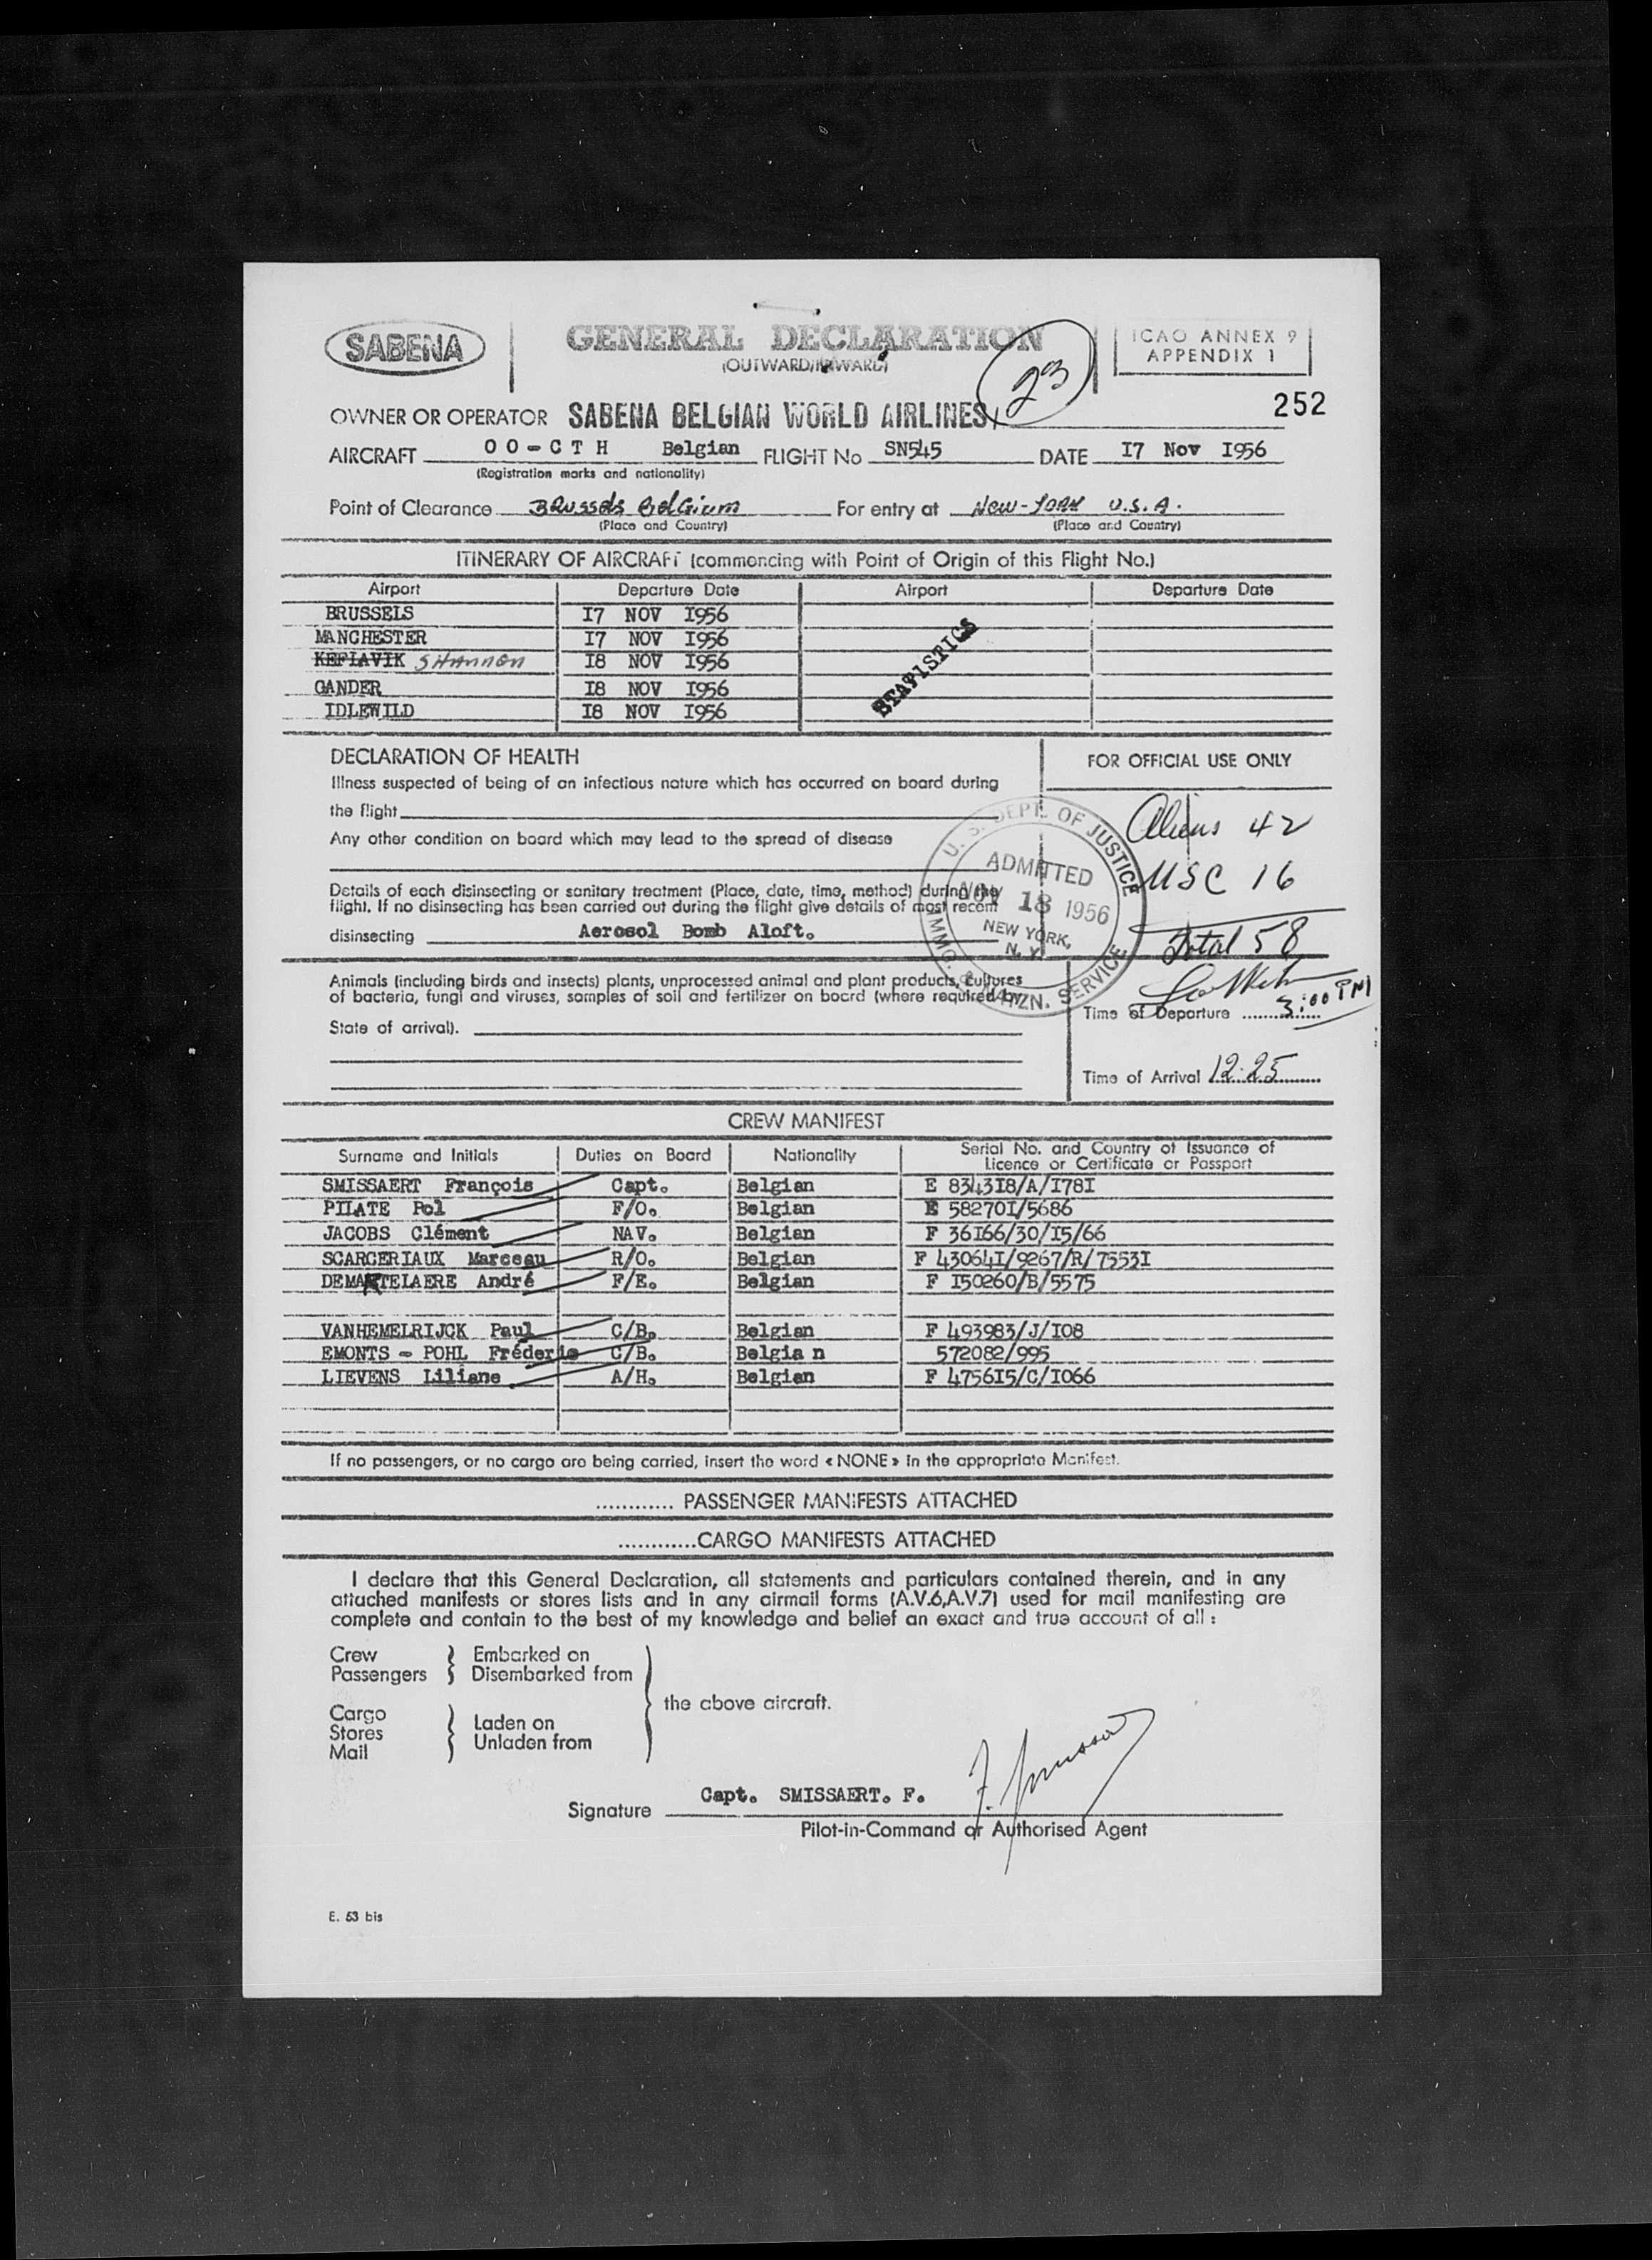 SABENA
GENERAL DECLARATION
(OUTWARD/INWARD)
23
ICAO ANNEX 9
APPENDIX 1
252
OWNER OR OPERATOR SABENA BELGIAN WORLD AIRLINES
AIRCRAFT OO-CTH Belgian FLIGHT No SN545 DATE I7 Nov I956
(Registration marks and nationality)
Point of Clearance Brussels Belgium For entry at New-York U.S.A.
(Place and Country) (Place and Country)
ITINERARY OF AIRCRAFT (commencing with Point of Origin of this Flight No.)
Airport Departure Date Airport Departure Date
BRUSSELS I7 NOV I956
MANCHESTER I7 NOV I956
KEFLAVIK SHANNON I8 NOV I956
GANDER I8 NOV I956
IDLEWILD I8 NOV I956
STATISTICS
DECLARATION OF HEALTH
FOR OFFICIAL USE ONLY
Illness suspected of being of an infectious nature which has occurred on board during
the flight
Any other condition on board which may lead to the spread of disease
Aliens 42
USC 16
Total 58
U. S. DEPT. OF JUSTICE
ADMITTED
NOV 18 1956
NEW YORK,
N. Y.
IMMG. & NATZN. SERVICE
Details of each disinsecting or sanitary treatment (Place, date, time, method) during the
flight. If no disinsecting has been carried out during the flight give details of most recent
disinsecting Aerosol Bomb Aloft.
Animals (including birds and insects) plants, unprocessed animal and plant products, cultures
of bacteria, fungi and viruses, samples of soil and fertilizer on board (where required by
State of arrival).
Time of Departure 3:00 PM
Time of Arrival 12:25
CREW MANIFEST
Surname and Initials Duties on Board Nationality Serial No. and Country of Issuance of
Licence or Certificate or Passport
SMISSAERT François Capt. Belgian E 8343I8/A/I78I
PILATE Pol F/O. Belgian E 58270I/5686
JACOBS Clément NAV. Belgian F 36I66/30/I5/66
SCARCERIAUX Marceau R/O. Belgian F 43064I/9267/R/7553I
DEMARTELAERE André F/E. Belgian F I50260/B/5575
VANHEMELRIJCK Paul C/B. Belgian F 493983/J/I08
EMONTS - POHL Fréderic C/B. Belgia n 572082/995
LIEVENS Liliane A/H. Belgian F 4756I5/C/I066
If no passengers, or no cargo are being carried, insert the word « NONE » in the appropriate Manifest.
............ PASSENGER MANIFESTS ATTACHED
............CARGO MANIFESTS ATTACHED
I declare that this General Declaration, all statements and particulars contained therein, and in any
attached manifests or stores lists and in any airmail forms (A.V.6,A.V.7) used for mail manifesting are
complete and contain to the best of my knowledge and belief an exact and true account of all :
Crew Embarked on
Passengers Disembarked from
the above aircraft.
Cargo
Stores Laden on
Mail Unladen from
Capt. SMISSAERT. F.
Signature
Pilot-in-Command or Authorised Agent
E. 53 bis